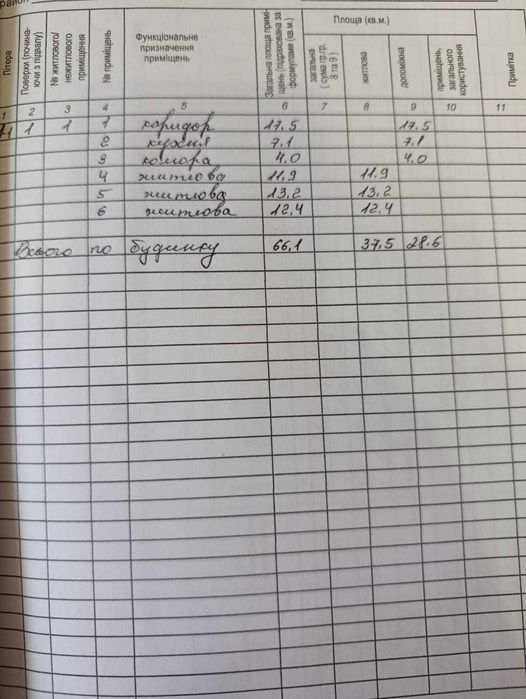 район
Літера
Поверхи (почина-
ючи з підвалу)
№ житлового/
нежитлового
приміщення
№ приміщень
Функціональне
призначення
приміщень
Загальна площа примі-
щень (підрахована за
формулами (кв.м.)
Площа (кв.м.)
загальна
( сума гр.гр.
8 та 9 )
житлова
допоміжна
приміщень,
загального
користування
Примітка
1 2 3 4 5 6 7 8 9 10 11
1 1 1 коридор 17.5 17.5
2 кухня 7.1 7.1
3 комора 4.0 4.0
4 житлова 11.9 11.9
5 житлова 13,2 13,2
6 житлова 12.4 12.4
Всього по будинку 66,1 37,5 28.6